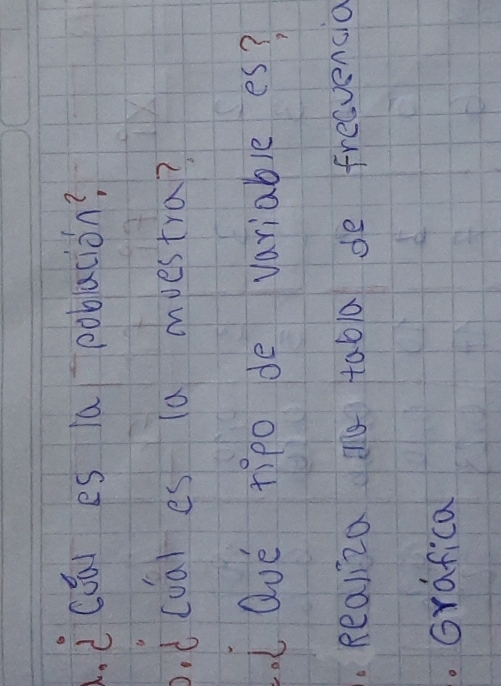 a. ¿ Cúal es la población?
b. ¿ Cúal es la muestra?
c. ¿ Qué tipo de variable es?
. Realiza la tabla de frecuencia
. Gráfica